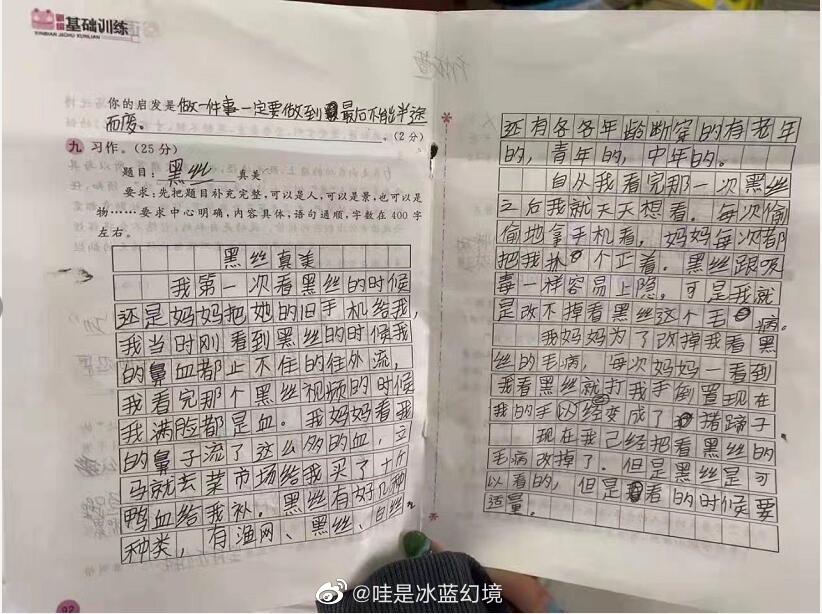 新编
基础训练
XINBIAN JICHU XUNLIAN
你的启发是做一件事一定要做到最后不能半途
而废。(2分)
九 习作。(25分)
题目：黑丝 真美
要求：先把题目补充完整，可以是人，可以是景，也可以是
物……要求中心明确，内容具体，语句通顺，字数在400字
左右。
黑丝真美
我第一次看黑丝的时候
还是妈妈把她的旧手机给我，
我当时刚看到黑丝的时候我
的鼻血都止不住的往外流，
我看完那个黑丝视频的时候
我满脸都是血。我妈妈看我
的鼻子流了这么多的血，立
马就去菜市场给我买了十斤
鸭血给我补。黑丝有好几种
种类，有渔网、黑丝、白丝
还有各各年龄断穿的有老年
的，青年的，中年的。
自从我看完那一次黑丝
之后我就天天想看。每次偷
偷地拿手机看，妈妈每次都
把我抓个正着。黑丝跟吸
毒一样容易上隐，可是我就
是改不掉看黑丝这个毛病。
我妈妈为了改掉我看黑
丝的毛病，每次妈妈一看到
我看黑丝就打我手倒置现在
我的手以经变成了猪蹄子
现在我己经把看黑丝的
毛病改掉了。但是黑丝是可
以看的，但是看的时候要
适量。
92
@哇是冰蓝幻境